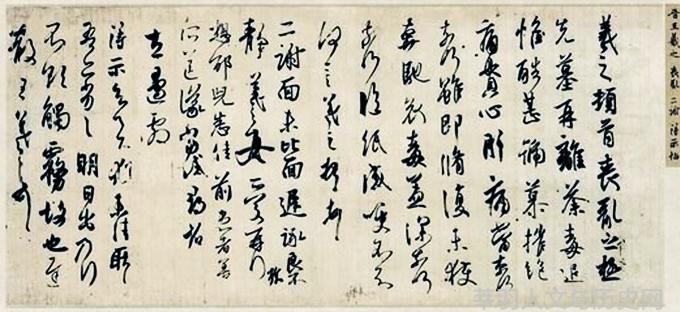 晉王羲之 喪亂 二謝 得示帖
羲之頓首喪亂之極
先墓再離荼毒追
惟酷甚號慕摧絕
痛貫心肝痛當柰何
柰何雖即脩復未獲
奔馳哀毒益深柰何
柰何臨紙感哽不知
何言羲之頓首頓首
二謝面未比面遲詠良不
靜羲之女愛再拜
想邰兒悉佳前患者善
所送議當試尋省
左邊劇
得示知足下猶未佳耿耿
吾亦劣劣明日出乃行
不欲觸霧故也遲
散王羲之頓首